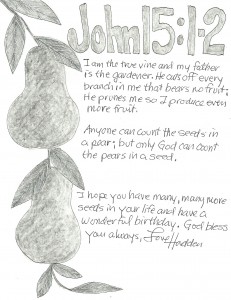 John 15:1-2
I am the true vine and my father
is the gardener. He cuts off every
branch in me that bears no fruit;
He prunes me so I produce even
more fruit.
Anyone can count the seeds in
a pear; but only God can count
the pears in a seed.
I hope you have many, many more
seeds in your life and have a
wonderful birthday. God bless
you always, Love Hadden